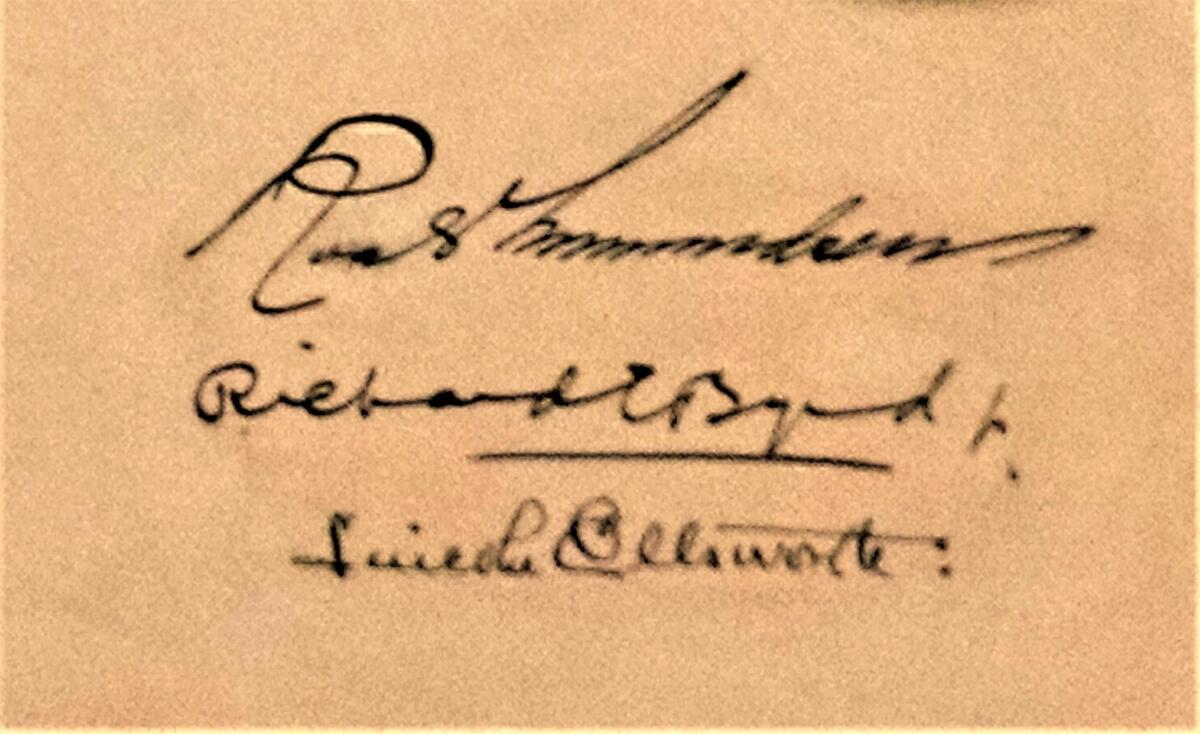 Roald Amundsen
Richard E Byrd Jr.
Lincoln Ellsworth: